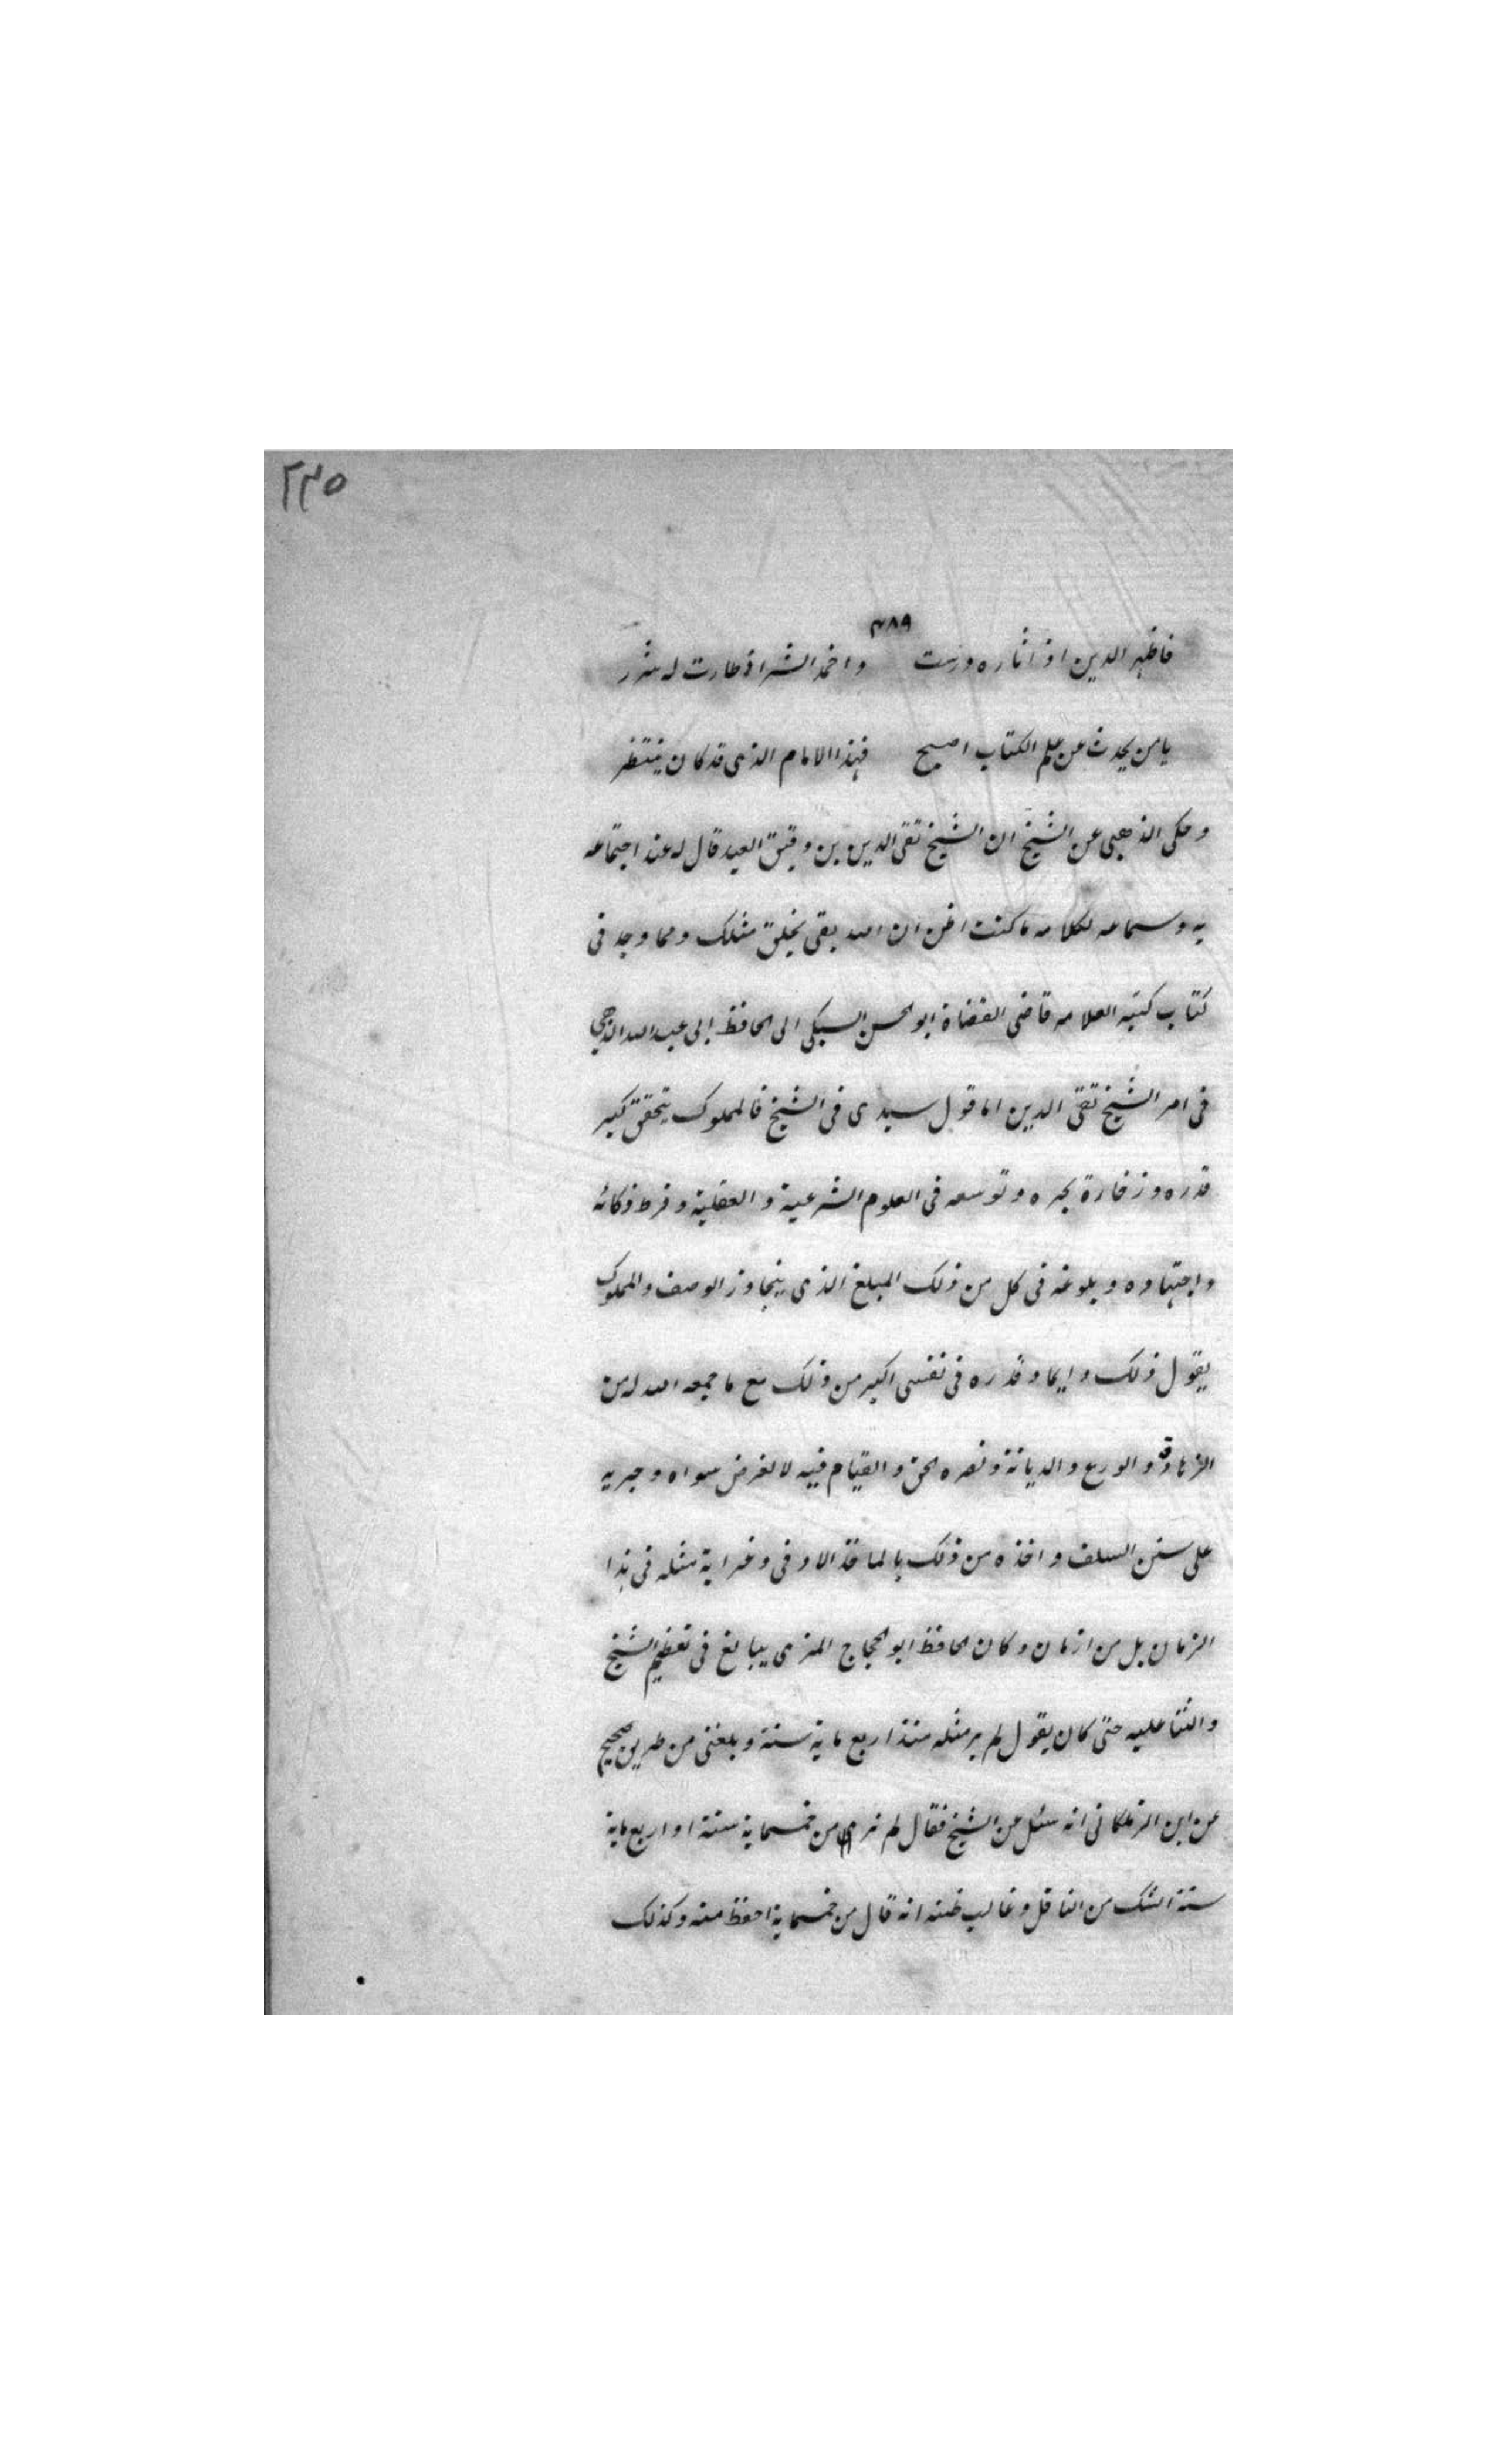 ٢٣٥
٣٨٩
فاظهر الدين اذ اثاره درست واخمد الشر اذ طارت له شرر
يا من يحدث عن علم الكتاب اصبح فهذا الامام الذى قد كان ينتظر
وحكى الذهبى عن الشيخ ان الشيخ تقى الدين بن دقيق العيد قال له عند اجتماعه
به وسماعه لكلامه ما كنت اظن ان الله بقى يخلق مثلك ومما وجد فى
كتاب كتبه العلامه قاضى القضاة ابو الحسن السبكى الى الحافظ ابى عبد الله الذهبى
فى امر الشيخ تقى الدين اما قول سيدى فى الشيخ فالمملوك يتحقق كبير
قدره وزخارة بحره وتوسعه فى العلوم الشرعية والعقلية وفرط ذكائه
واجتهاده وبلوغه فى كل من ذلك المبلغ الذى يتجاوز الوصف والمملوك
يقول ذلك دايما وقدره فى نفسى اكبر من ذلك مع ما جمعه الله له من
الزهادة والورع والديانة ونصره الحق والقيام فيه لا لغرض سواه وجريه
على سنن السلف واخذه من ذلك بالماخذ الاوفى وغرابة مثله فى هذا
الزمان بل من ازمان وكان الحافظ ابو الحجاج المزى يبالغ فى تعظيم الشيخ
والثنا عليه حتى كان يقول لم ير مثله منذ اربع ماية سنة وبلغنى من طريق صحيح
عن ابن الزملكانى انه سئل عن الشيخ فقال لم نر من خمسماية سنة او اربع ماية
سنة الشك من الناقل وغالب ظنه انه قال من خمسماية احفظ منه وكذلك